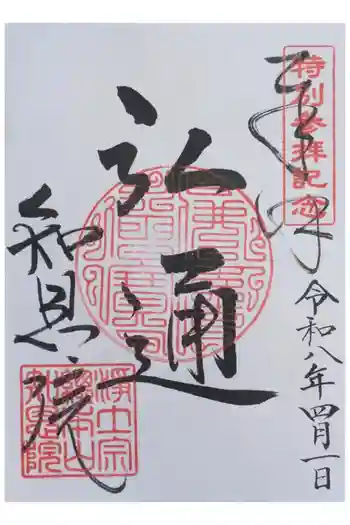 特別参拝記念
奉拝
令和八年四月一日
弘通
知恩院
浄土宗
総本山
知恩院